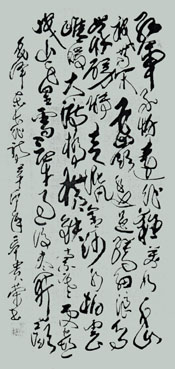 红軍不怕远征难万水千山
只等闲五岭逶迤腾细浪乌
蒙磅礴走泥丸金沙水拍云
崖暖大渡桥横铁索寒更喜
岷山千里雪三軍过后尽开颜
毛泽东